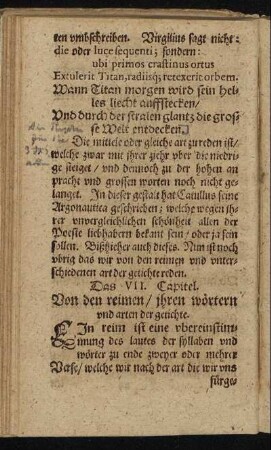 ten vmbschreiben. Virgilius sagt nicht:
die oder luce sequenti; sondern:
ubi primos crastinus ortus
Extulerit Titan, radiisq; retexerit orbem.
Wann Titan morgen wird sein hel-
les liecht auffstecken/
Vnd durch der stralen glantz die gros-
se Welt entdecken.
Die mittele oder gleiche art zu reden ist/
welche zwar mit jhrer ziehr vber die niedri-
ge steiget/ vnd dennoch zu der hohen an
pracht vnd grossen worten noch nicht ge-
langet. In dieser gestalt hat Catullus seine
Argonautica geschrieben; welche wegen jh-
rer vnvergleichlichen schönheit allen der
Poesie liebhabern bekant sein/ oder ja sein
sollen. Bißhieher auch dieses. Nun ist noch
vbrig das wir von den reimen vnd vnter-
schiedenen art der getichte reden.
Das VII. Capitel.
Von den reimen/ jhren wörtern
vnd arten der getichte.
EIn reim ist eine vbereinstim-
mung des lautes der syllaben vnd
wörter zu ende zweyer oder mehrer
Verse/ welche wir nach der art die wir vns
fürge-